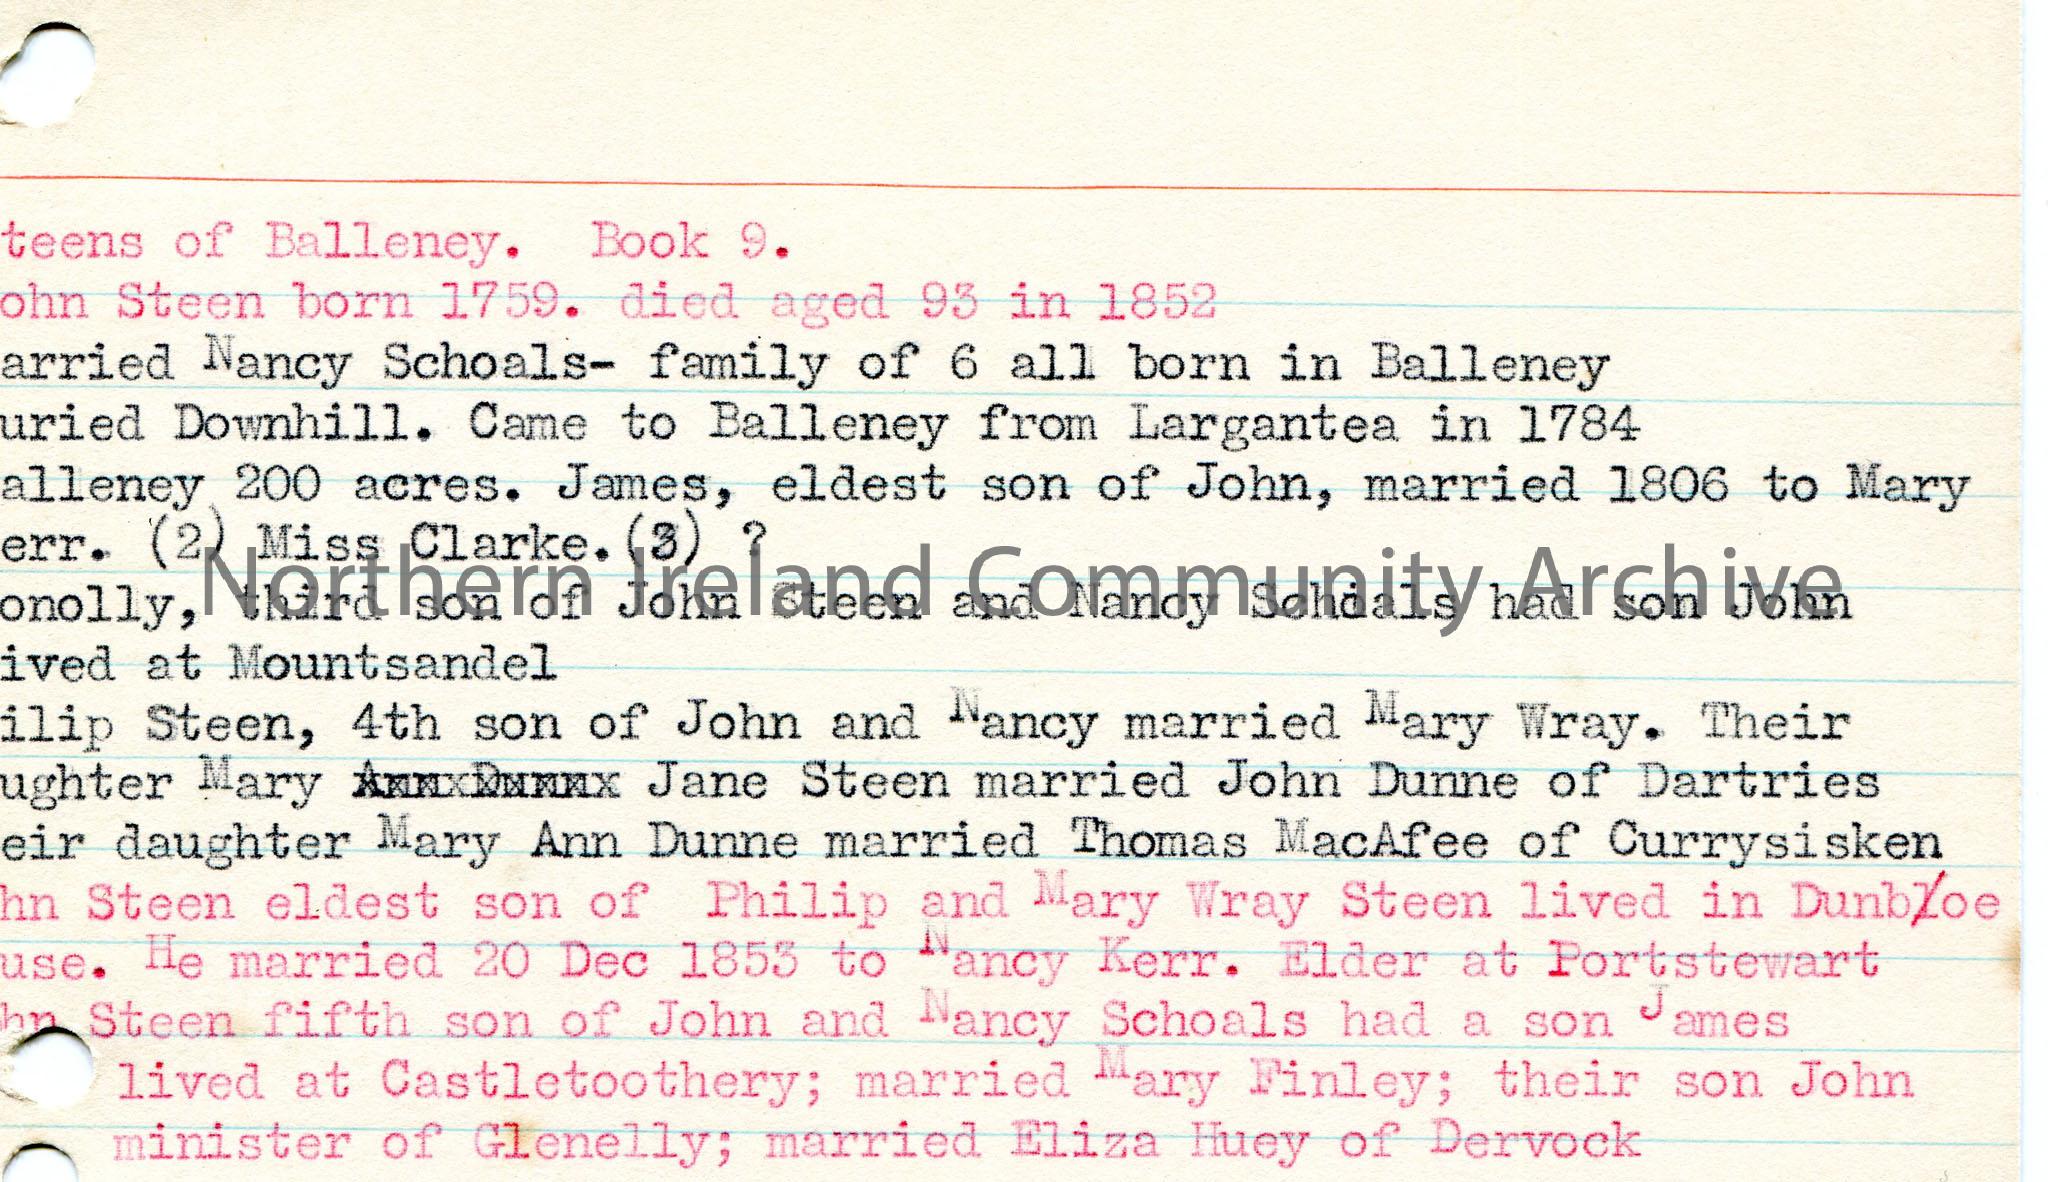 teens of Balleney. Book 9.
ohn Steen born 1759. died aged 93 in 1852
arried Nancy Schoals- family of 6 all born in Balleney
uried Downhill. Came to Balleney from Largantea in 1784
alleney 200 acres. James, eldest son of John, married 1806 to Mary
err. (2) Miss Clarke.(3) ?
Northern Ireland Community Archive
onolly, third son of John Steen and Nancy Schoals had son John
ived at Mountsandel
ilip Steen, 4th son of John and Nancy married Mary Wray. Their
ughter Mary Jane Steen married John Dunne of Dartries
eir daughter Mary Ann Dunne married Thomas MacAfee of Currysisken
hn Steen eldest son of Philip and Mary Wray Steen lived in Dunbloe
use. He married 20 Dec 1853 to Nancy Kerr. Elder at Portstewart
hn Steen fifth son of John and Nancy Schoals had a son James
lived at Castletoothery; married Mary Finley; their son John
minister of Glenelly; married Eliza Huey of Dervock